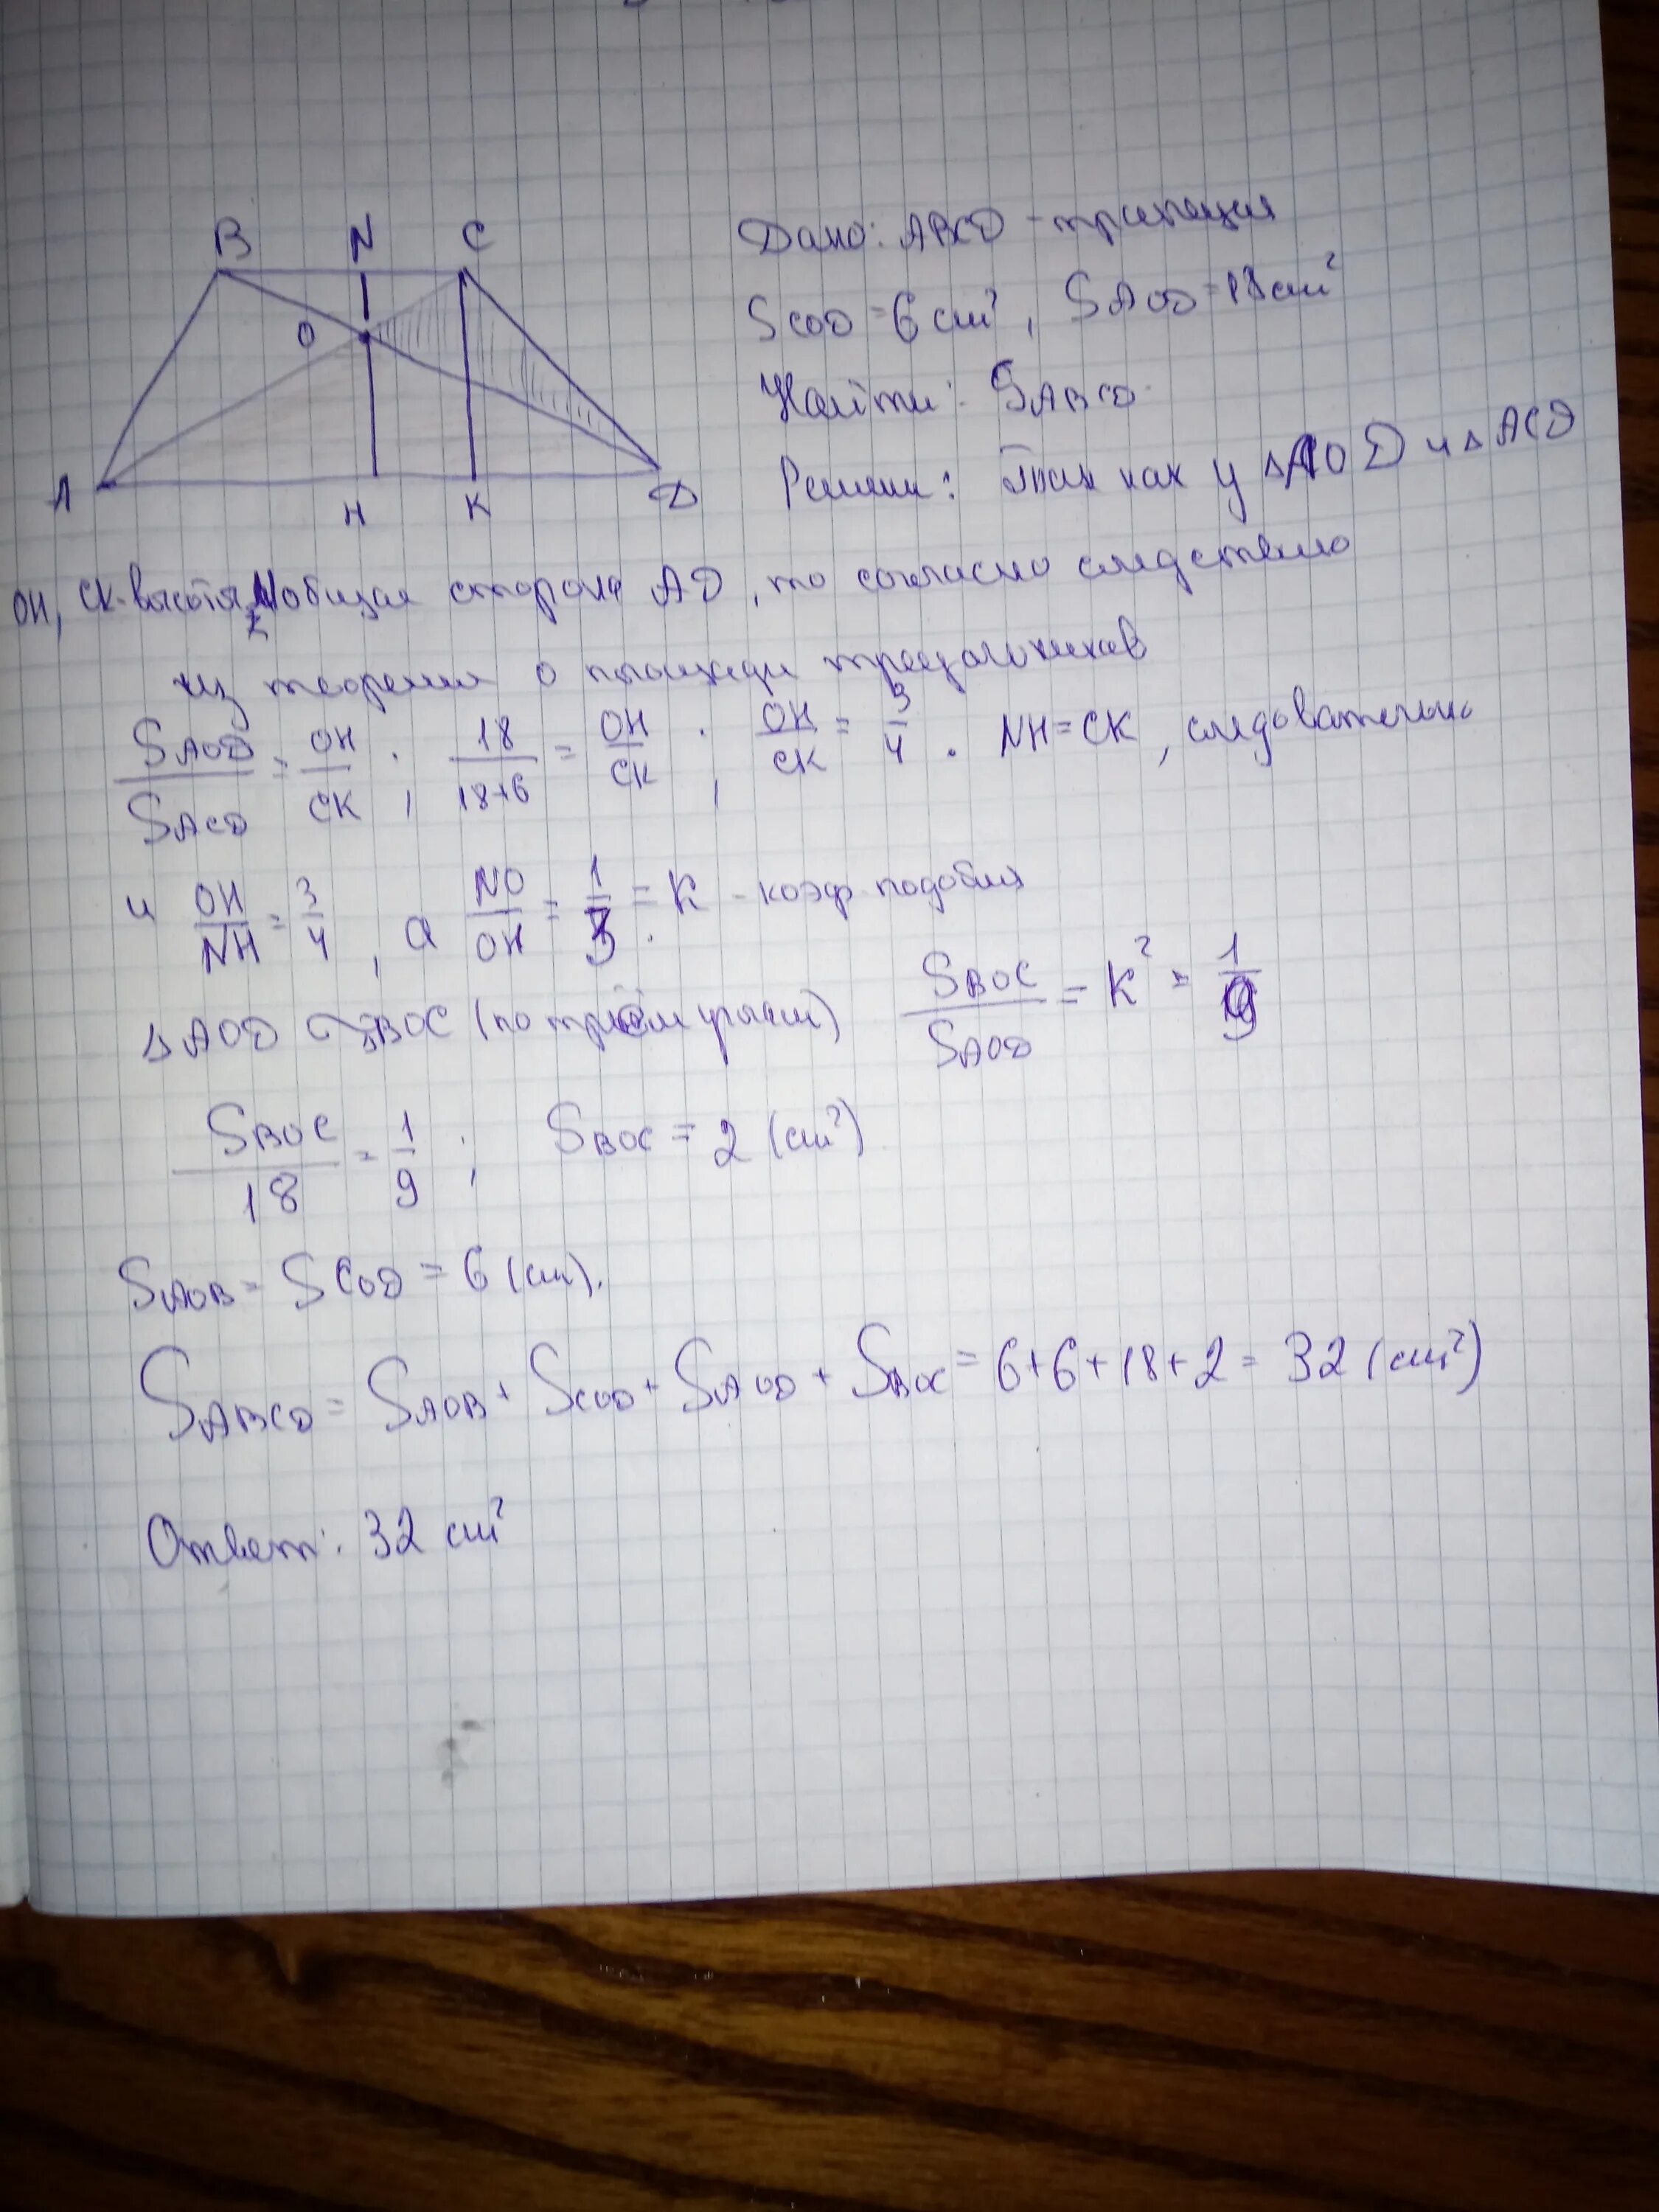 B N C
O
A H K D
Дано: ABCD - трапеция
S COD = 6 см², S AOD = 18 см²
Найти: S ABCD.
Решен: Так как у △AOD и △ACD
OH, CK - высоты, и общая сторона AD, то согласно следствию
из теоремы о площади треугольников
S AOD / S ACD = OH / CK ; 18 / 18+6 = OH / CK ; OH / CK = 3 / 4 . NH = CK, следовательно
и OH / NH = 3 / 4 , а NO / OH = 1 / 3 = K - коэф подобия
△ AOD ∽ △ BOC (по трём углам) S BOC / S AOD = K² = 1 / 9
S BOC / 18 = 1 / 9 ; S BOC = 2 (см²)
S AOB = S COD = 6 (см).
S ABCD = S AOB + S COD + S AOD + S BOC = 6 + 6 + 18 + 2 = 32 (см²)
Ответ: 32 см²